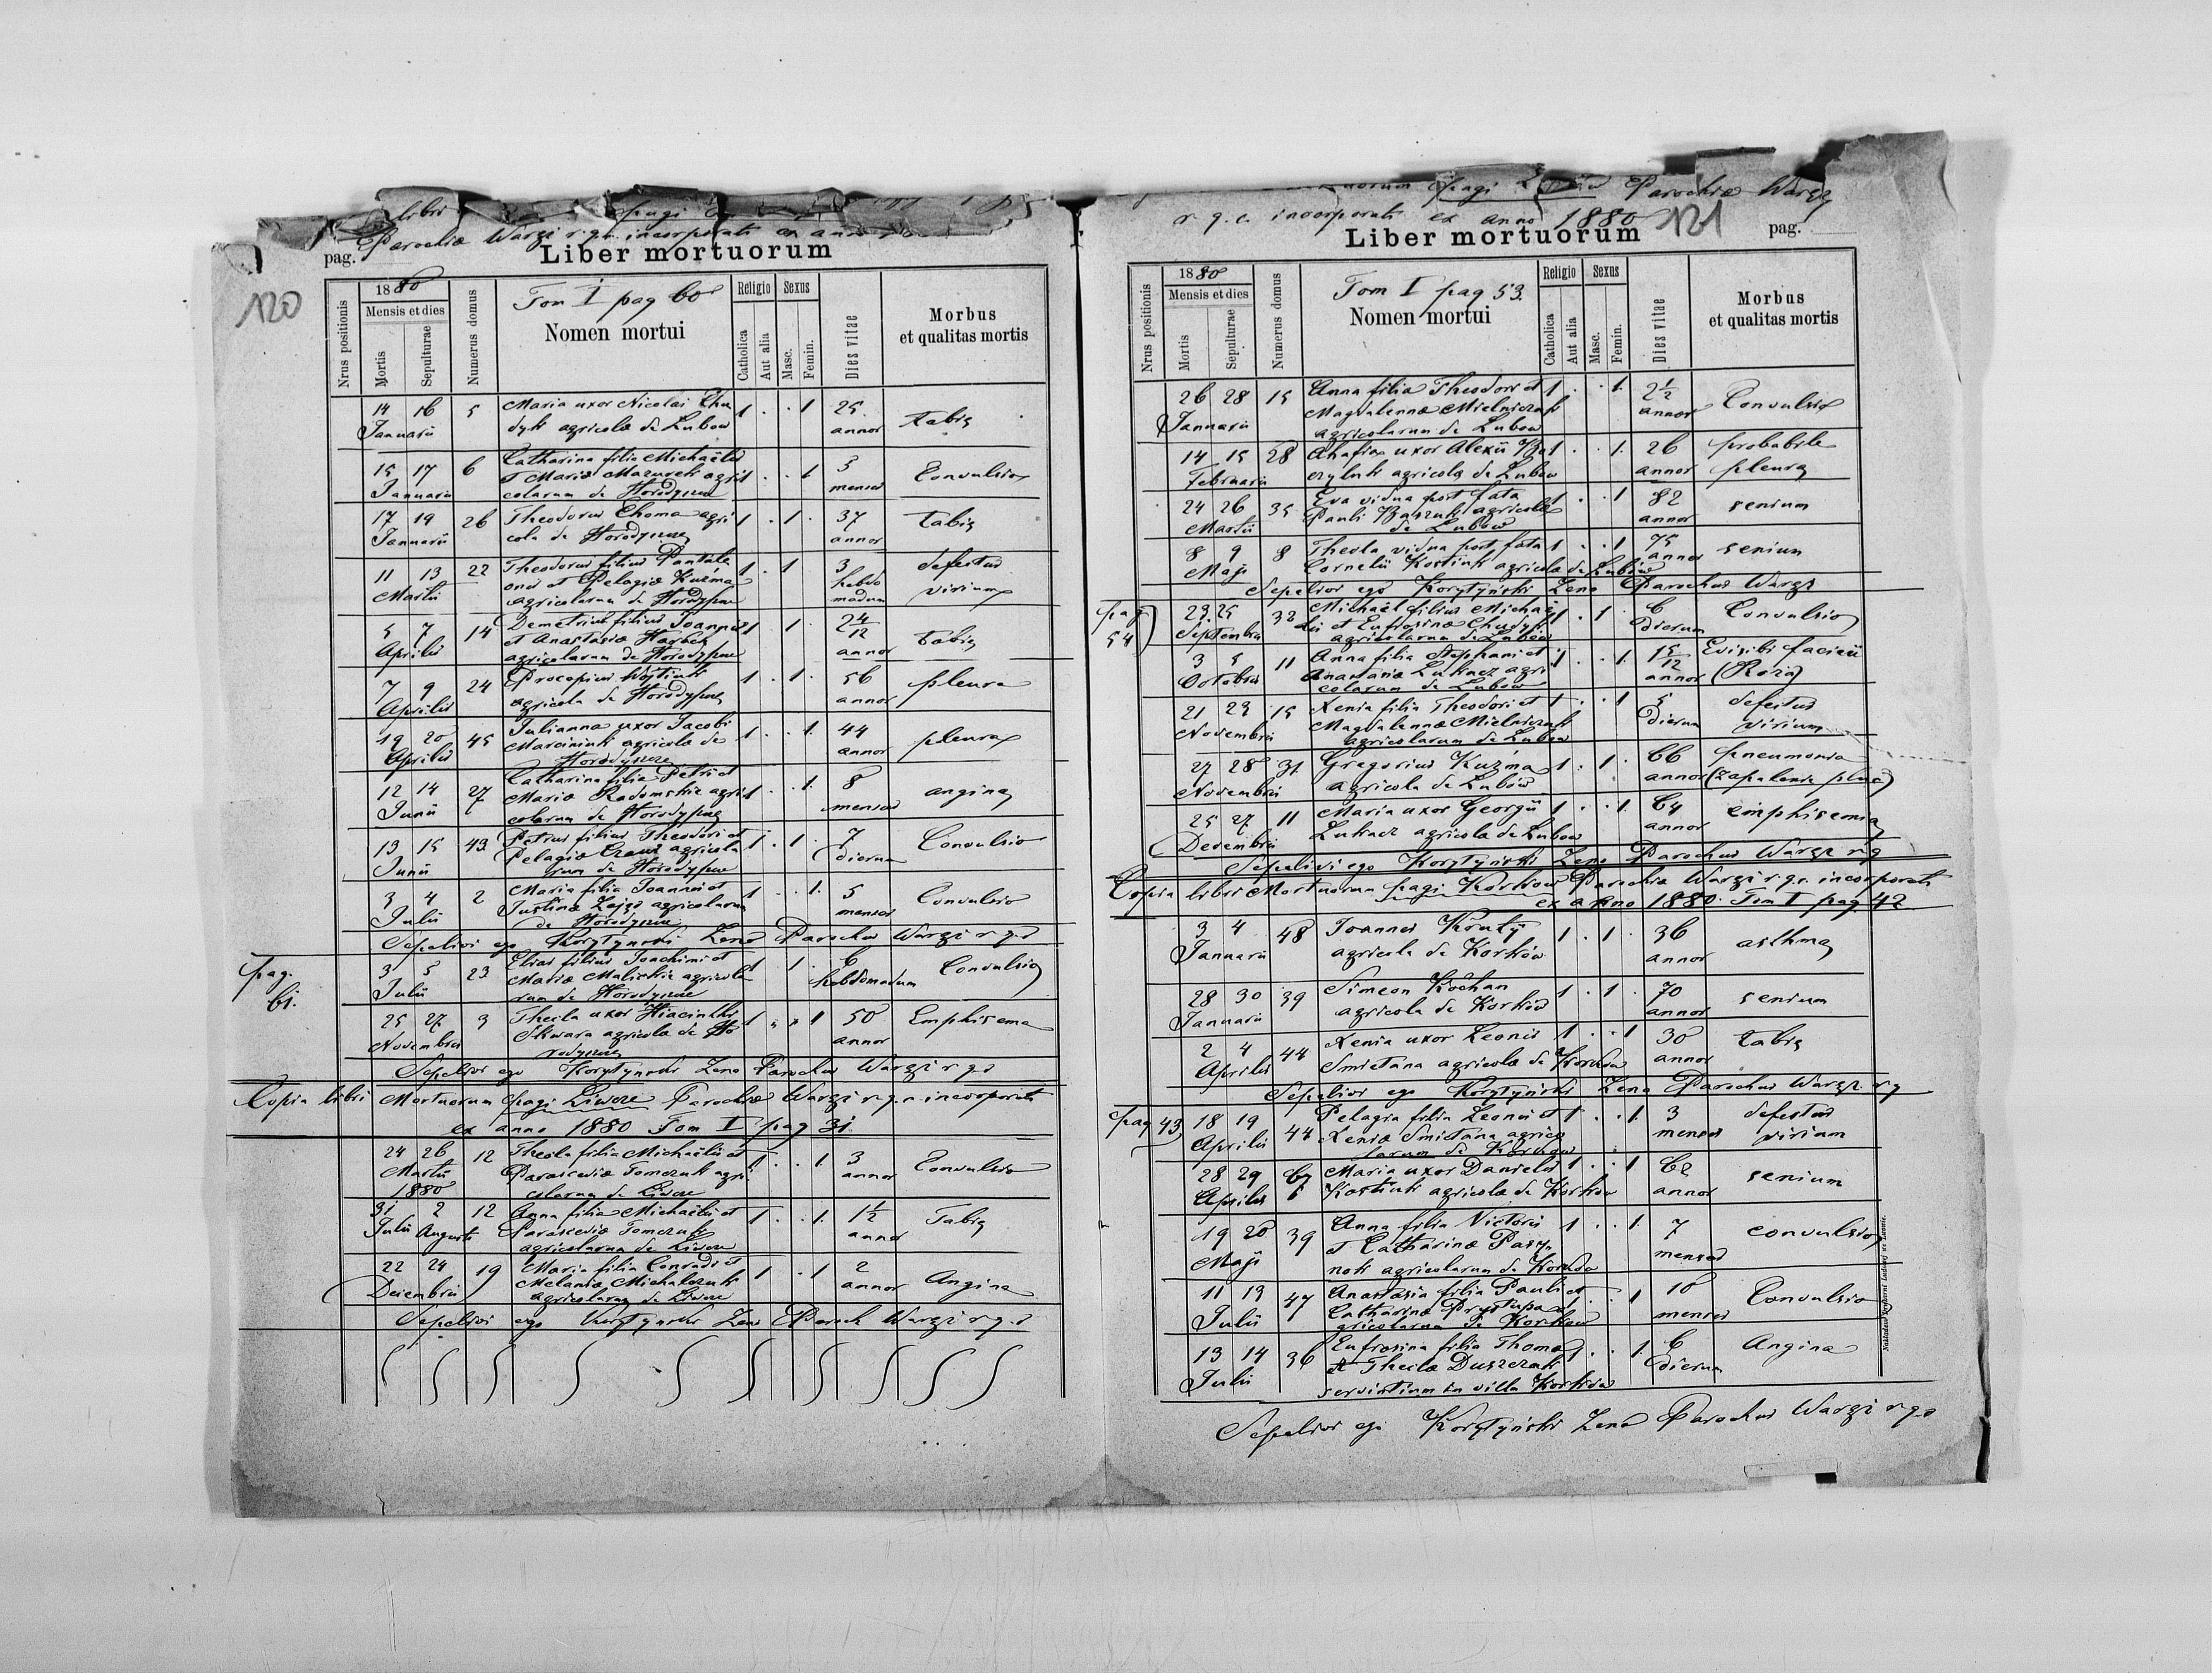 libri pagi
Parochiæ Waręż r. g. c. incorporati ex anno
pag. Liber mortuorum
120
Nrus positionis
1880
Mensis et dies
Mortis
Sepulturae
Numerus domus
Tom I pag 60
Nomen mortui
Religio
Catholica
Aut alia
Sexus
Masc.
Femin.
Dies vitae
Morbus
et qualitas mortis
14 16 5 Maria uxor Nicolai Chu 1 . . 1 25
Januarii dyk agricolæ de Lubow annor tabis
15 17 6 Catharina filia Michaëlis
et Mariæ Mazurek agri 1 . . 1 3 Convulsio
Januarii colarum de Horodyszcze menses
17 19 26 Theodorus Choma agri 1 . 1 . 37 tabis
Januarii cola de Horodyszcze annor
11 13 22 Theodorus filius Pantale 1 . 1 3 defectus
Martii onis et Pelagiæ Kuzma hebdo virium
agricolarum de Horodyszcze madum
5 7 14 Demetrius filius Joannis 1 . 1 . 2 4/12
Aprilis et Anastasiæ annor tabis
agricolarum de Horodyszcze
7 9 24 Procopius Wojtiuk 1 . 1 . 56 pleura
Aprilis agricola de Horodyszcze annor
19 20 45 Julianna uxor Jacobi 1 . . 1. 44 pleura
Aprilis Marciniuk agricolæ de annor
Horodyszcze
12 14 27 Catharina filia Petri et 8
Junii Mariæ Radomskie agri 1 . . 1. menses angina
colarum de Horodyszcze
13 15 43 Petrus filius Theodori et 1 . 1 . 7 Convulsio
Junii Pelagiæ agricola dierum
rum de Horodyszcze
3 4 2 Maria filia Joannis et 1 . . 1. 5 Convulsio
Julii Justinæ Zając agricolarum menses
de Horodyszcze
Sepelivi ego Korytyński Zeno Parochus Waręż r g c
pag.
61.
3 5 23 Elias filius Joachimi et 1 1 . 6 Convulsio
Julii Mariæ Malickie agricola hebdomadum
rum de Horodyszcze
25 27 3 Thecla uxor Hiacinthi 1 . . 1 50 Emphisema
Novembris Skwara agricolæ de Ho annor
rodyszcze
Sepelivi ego Korytyński Zeno Parochus Waręż r g c
Copia libri Mortuorum pagi Liwcze Parochiæ Waręż r. g. c. incorporati
ex anno 1880 Tom I pag 31.
24 26 12 Thecla filia Michaëlis et 1 . . 1. 3 Convulsio
Martii Parasceviæ Tomczuk agri annor
1880 colarum de Liwcze
31 2 12 Anna filia Michaëlis et 1 . . 1. 1 1/2 Tabis
Julii Augusti Parasceviæ Tomczuk anno
agricolarum de Liwcze
22 24 19 Maria filia Conradi et 1 . 1 2 Angina
Decembris Melaniæ Michalczuk annor
agricolarum de Liwcze
Sepelivi ego Korytyński Zeno Paroch Waręż r. g. c
pagi Parochiæ Waręż
r. g. c. incorporati ex anno 1880
121
Liber mortuorum pag.
Nrus positionis
1880
Mensis et dies
Mortis
Sepulturae
Numerus domus
Tom I pag 53.
Nomen mortui
Religio
Catholica
Aut alia
Sexus
Masc.
Femin.
Dies vitae
Morbus
et qualitas mortis
26 28 15 Anna filia Theodori et 1 . . 1. 2 1/2 Convulsio
Januarii Magdalennæ Mielniczuk annor
agricolarum de Lubow
14 15 28 Ahafia uxor Alexii 1 . . 1. 26 probabile
Februarii agricolæ de Lubow annor pleura
24 26 35 Eva vidua post fata 1 . . 1 82 senium
Martii Pauli agricolæ annor
de Lubów
8 9 8 Thecla vidua post fata 1 . . 1 75 senium
Maji Cornelii Kostiuk agricolæ de Lubów annor
Sepelivi ego Korytyński Zeno Parochus Waręż
pag
54
23 25 32 Michaël filius Michaë 1 . 1 . 6 Convulsio
Septembris lis et Eufrosinæ Chudyk dierum
agricolarum de Lubów
3 5 11 Anna filia Stephani et 1 . . 1. 15/12 faciei
Octobris Anastasiæ Łukacz agri annor (Róża)
colarum de Lubów
21 23 15 Xenia filia Theodori et 1 . . 1 5 defectus
Novembris Magdalennæ Mielniczuk dierum virium
agricolarum de Lubow
27 28 31 Gregorius Kuźma 1 . 1 . 66 pneumonia
Novembris agricola de Lubów annor (zapalenie płuc)
25 27 11 Maria uxor Georgii 1 . . 1. 64 emphisema
Decembris Łukacz agricolæ de Lubow annor
Sepelivi ego Korytyński Zeno Parochus Waręż r g
Copia libri Mortuorum pagi Korków Parochiæ Waręż r. g. c. incorporati
ex anno 1880. Tom I pag 42
3 4 48 Joannes Kruty 1 . 1 . 36 asthma
Januarii agricola de Korków annor
28 30 39 Simeon Kochan 1 . 1 . 70 senium
Januarii agricola de Korków annor
2 4 44 Xenia uxor Leonis 1 . . 1 30 tabis
Aprilis Smietana agricolæ de Korków annor
Sepelivi ego Korytyński Zeno Parochus Waręż r g
pag 43
18 19 44 Pelagia filia Leonis et 1 . . 1. 3 defectus
Aprilis Xeniæ Smietana agrico menses virium
larum de Korków
28 29 Maria uxor Danielis 1 . . 1 62 senium
Aprilis Kostiuk agricolæ de Korków annor
19 20 39 Anna filia Victoris 1 . . 1. 7 convulsio
Maji et Catharinæ menses
agricolarum de Korków
11 13 47 Anastasia filia Pauli et . . 1 10 Convulsio
Julii Catharinæ Prystupa a menses
gricolarum de Korków
13 14 36 Eufrosina filia Thomæ 1 . . 1. 6 Angina
Julii et Theclæ Duszczak dierum
servientium in villa Korków
Sepelivi ego Korytyński Zeno Parochus Waręż r g c